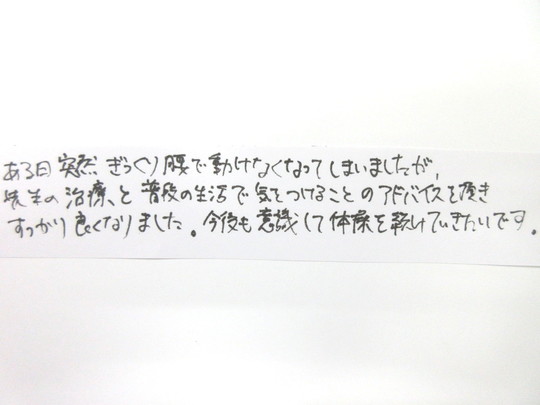 ある日突然ぎっくり腰で動けなくなってしまいましたが、
先生の治療、と普段の生活で気をつけることのアドバイスを頂き
すっかり良くなりました。今後も意識して体操を続けていきたいです。